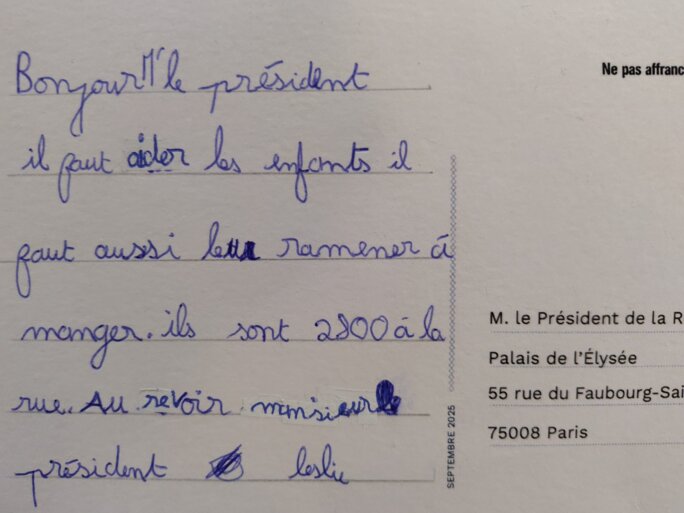 Bonjour M' le président
il faut aider les enfants il
faut aussi leur ramener à
manger. ils sont 2800 à la
rue. Au revoir monsieur le
président leslie
Ne pas affranc
M. le Président de la R
Palais de l'Élysée
55 rue du Faubourg-Sai
75008 Paris
SEPTEMBRE 2025